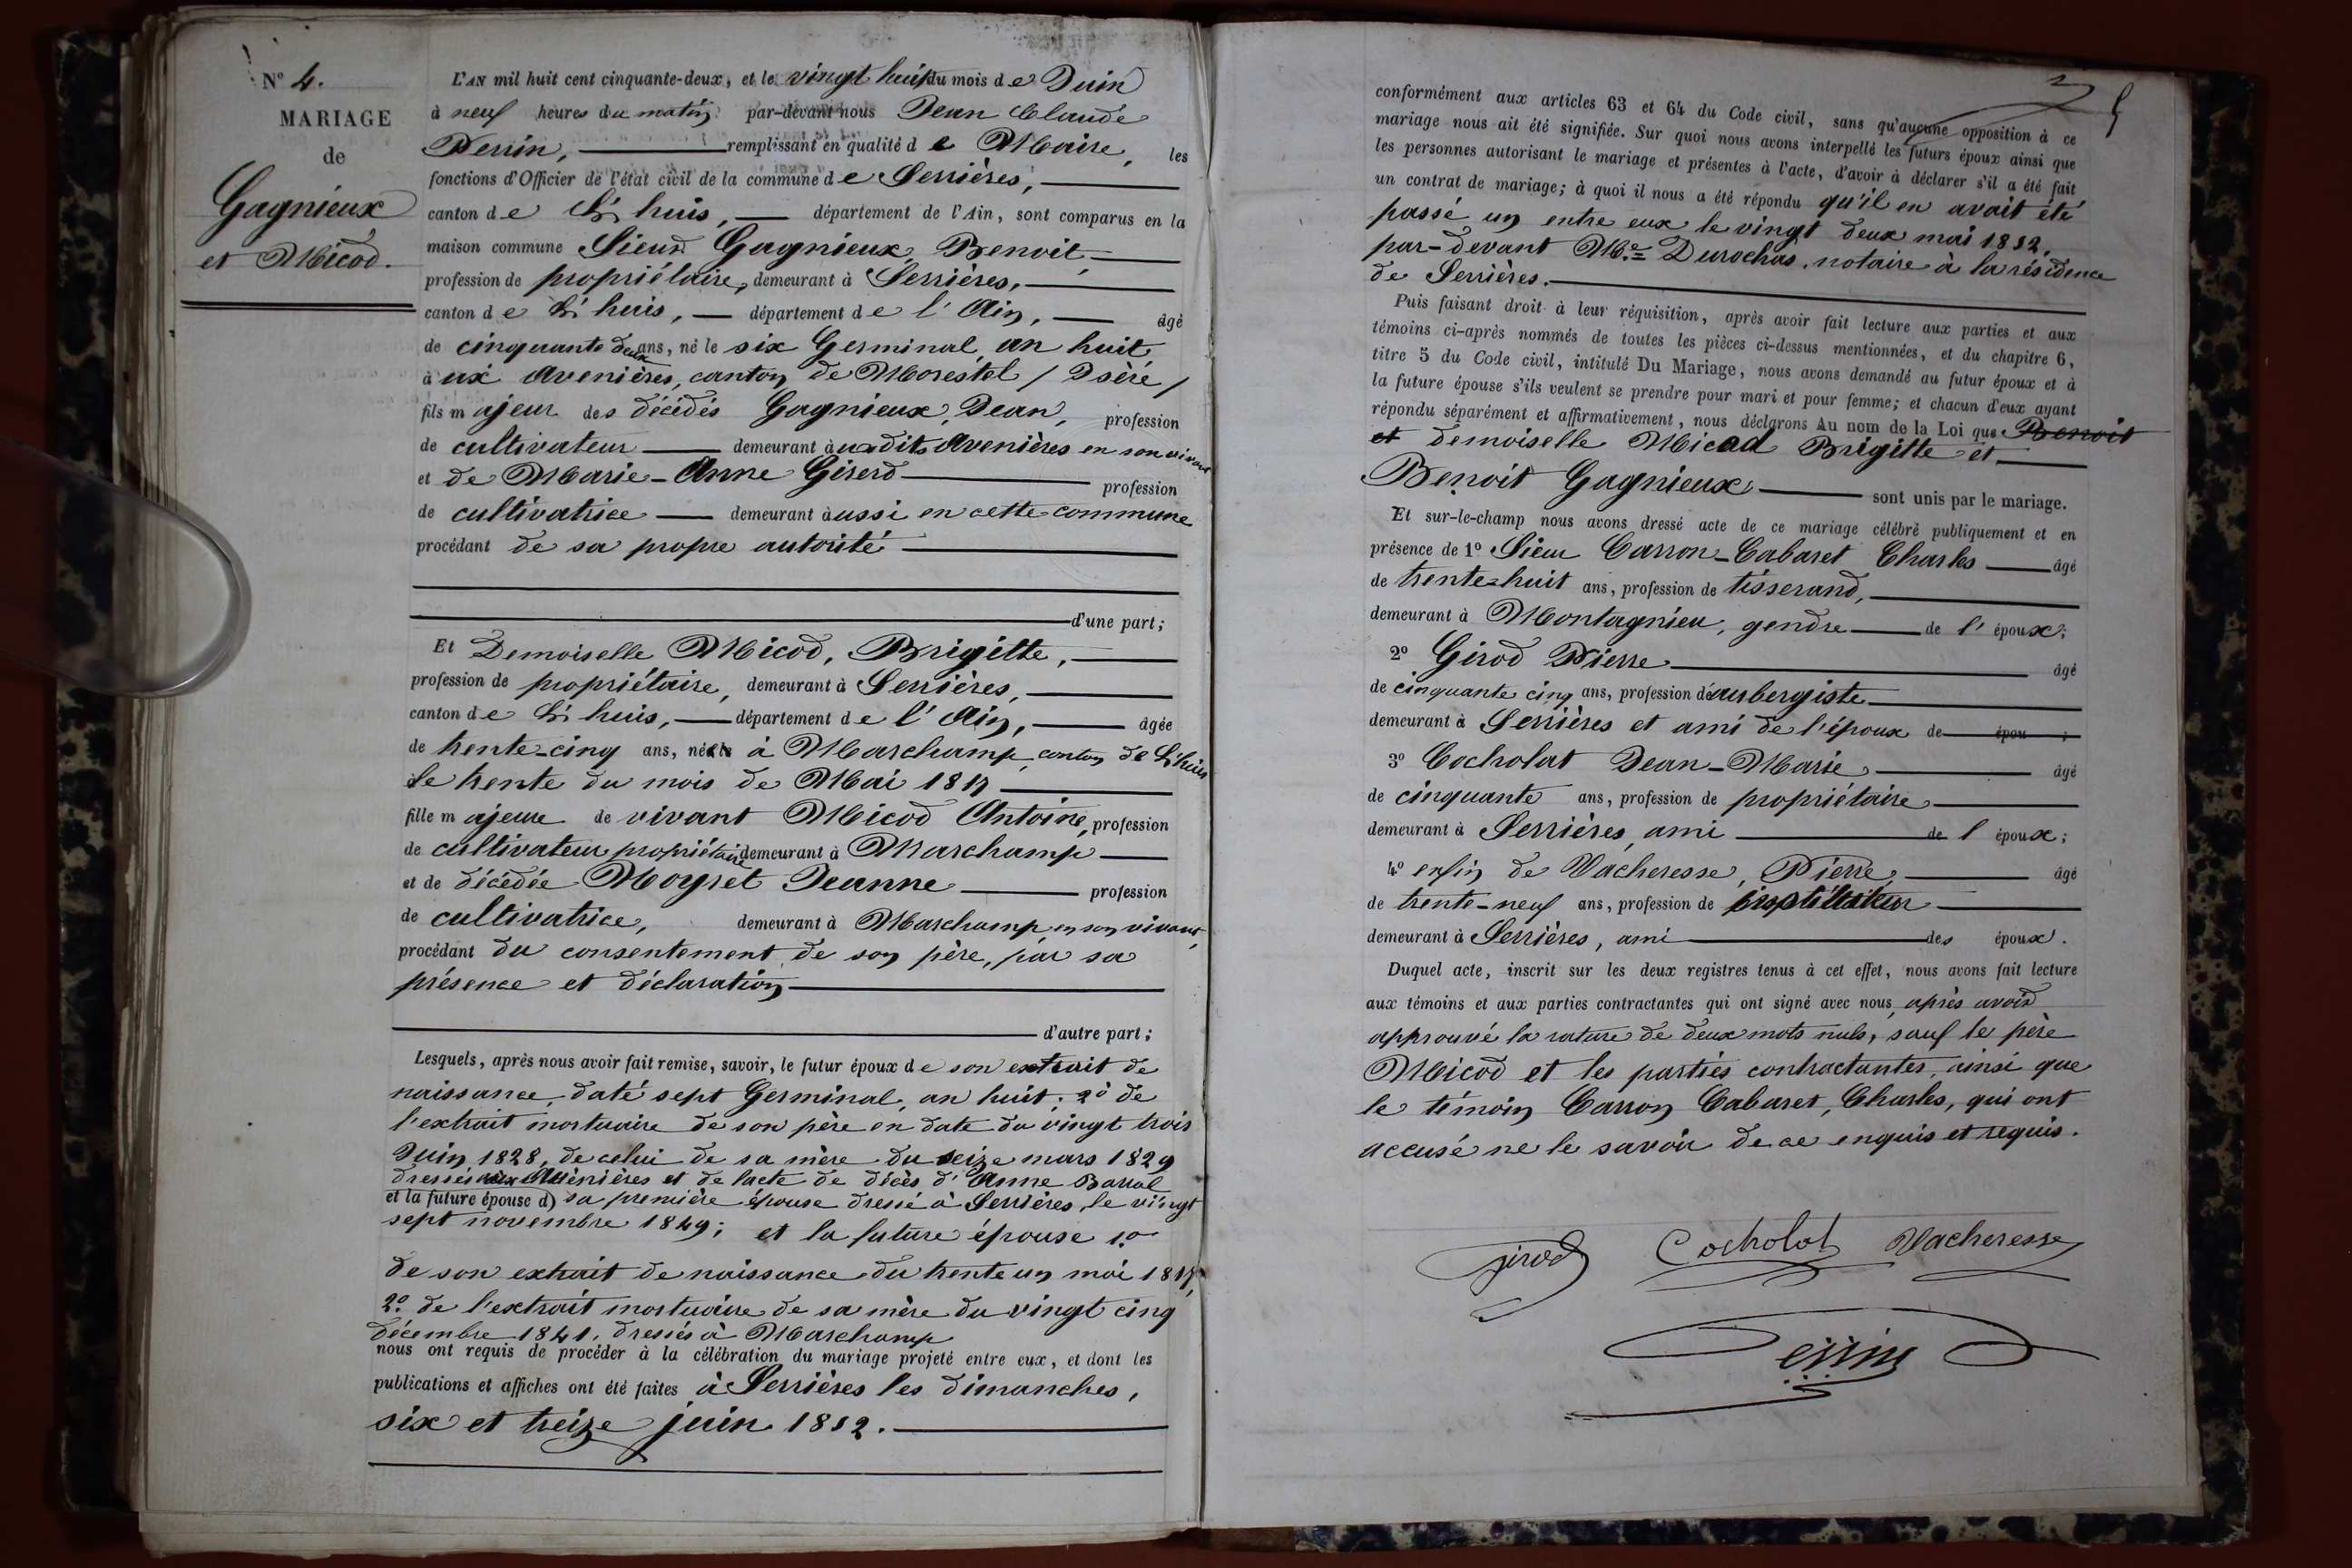 Nº 4.
MARIAGE
de
Gagnieux
et Micod.
L'AN mil huit cent cinquante-deux, et le vingt huit du mois de Juin
à neuf heures du matin par-devant nous Jean Claude
Perrin, remplissant en qualité de Maire, les
fonctions d'Officier de l'état civil de la commune de Serrières,
canton de L'huis, département de l'Ain, sont comparus en la
maison commune Sieur Gagnieux, Benoit,
profession de propriétaire, demeurant à Serrières,
canton de L'huis, département de l'Ain, âgé
de cinquante deux ans, né le six Germinal, an huit,
à ux Avenières, canton de Morestel / Isère /
fils majeur des décédés Gagnieux, Jean, profession
de cultivateur demeurant auxdits Avenières en son vivant
et de Marie-Anne Giserd profession
de cultivatrice demeurant aussi en cette commune
procédant de sa propre autorité
d'une part;
Et Demoiselle Micod, Brigitte,
profession de propriétaire, demeurant à Serrières,
canton de L'huis, département de l'Ain, âgée
de trente-cinq ans, née à Marchamp, canton de L'huis
le trente du mois de Mai 1817
fille majeure de vivant Micod Antoine, profession
de cultivateur propriétaire demeurant à Marchamp
et de décédée Moyret Jeanne profession
de cultivatrice, demeurant à Marchamp, en son vivant,
procédant du consentement de son père, par sa
présence et déclaration
d'autre part;
Lesquels, après nous avoir fait remise, savoir, le futur époux de son extrait de
naissance, daté sept Germinal, an huit; 2º de
l'extrait mortuaire de son père en date du vingt trois
Juin 1828, de celui de sa mère du seize mars 1829
dressés aux Avenières et de l'acte de décès d'Anne Barral
et la future épouse d) sa première épouse dressé à Serrières, le vingt
sept novembre 1849; et la future épouse 1º
de son extrait de naissance du trente un mai 1817,
2º. de l'extrait mortuaire de sa mère du vingt cinq
décembre 1841, dressés à Marchamp
nous ont requis de procéder à la célébration du mariage projeté entre eux, et dont les
publications et affiches ont été faites à Serrières les dimanches,
six et treize juin 1852.
5
conformément aux articles 63 et 64 du Code civil, sans qu'aucune opposition à ce
mariage nous ait été signifiée. Sur quoi nous avons interpellé les futurs époux ainsi que
les personnes autorisant le mariage et présentes à l'acte, d'avoir à déclarer s'il a été fait
un contrat de mariage; à quoi il nous a été répondu qu'il en avait été
passé un entre eux le vingt deux mai 1852,
par-devant Me. Durochas, notaire à la résidence
de Serrières.
Puis faisant droit à leur réquisition, après avoir fait lecture aux parties et aux
témoins ci-après nommés de toutes les pièces ci-dessus mentionnées, et du chapitre 6,
titre 5 du Code civil, intitulé Du Mariage, nous avons demandé au futur époux et à
la future épouse s'ils veulent se prendre pour mari et pour femme; et chacun d'eux ayant
répondu séparément et affirmativement, nous déclarons Au nom de la Loi que Benoit
et demoiselle Micod Brigitte et
Benoit Gagnieux sont unis par le mariage.
Et sur-le-champ nous avons dressé acte de ce mariage célébré publiquement et en
présence de 1º Sieur Carron-Cabaret Charles âgé
de trente-huit ans, profession de tisserand,
demeurant à Montagnieu, gendre de l'époux;
2º Girod Pierre âgé
de cinquante cinq ans, profession d'aubergiste
demeurant à Serrières et ami de l'époux de épou ;
3º Cocholat Jean-Marie, âgé
de cinquante ans, profession de propriétaire
demeurant à Serrières, ami de l époux;
4º enfin de Vacheresse, Pierre, âgé
de trente-neuf ans, profession de
demeurant à Serrières, ami des époux.
Duquel acte, inscrit sur les deux registres tenus à cet effet, nous avons fait lecture
aux témoins et aux parties contractantes qui ont signé avec nous, après avoir
approuvé la rature de deux mots nuls, sauf le père
Micod et les parties contractantes, ainsi que
le témoin Carron Cabaret, Charles, qui ont
accusé ne le savoir de ce enquis et requis.
Girod Cocholat Vacheresse
Perrin